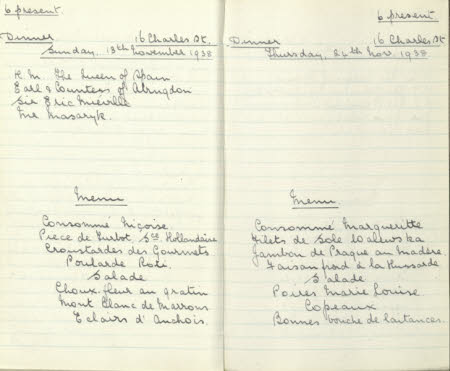 6 present.
Dinner 16 Charles St.
Sunday, 13th November 1938
H.M. The Queen of Spain
Earl & Countess of Abingdon
Sir Eric Miéville
Mr Masaryk.
Menu
Consommé Niçoise
Piece de Turbot Sce Hollandaise
Croustardes des Gourmets
Poularde Rotie
Salade
Choux-fleur au gratin
Mont Blanc de Marrons
Eclairs d'Anchois.
6 present.
Dinner 16 Charles St
Thursday, 24th Nov. 1938
Menu.
Consommé Margueritte
Filets de Sole Walewska
Jambon de Prague au Madère
Faisan froid à la Hussarde
Salade
Poires Marie Louise
Copeaux
Bonnes bouche de laitances.